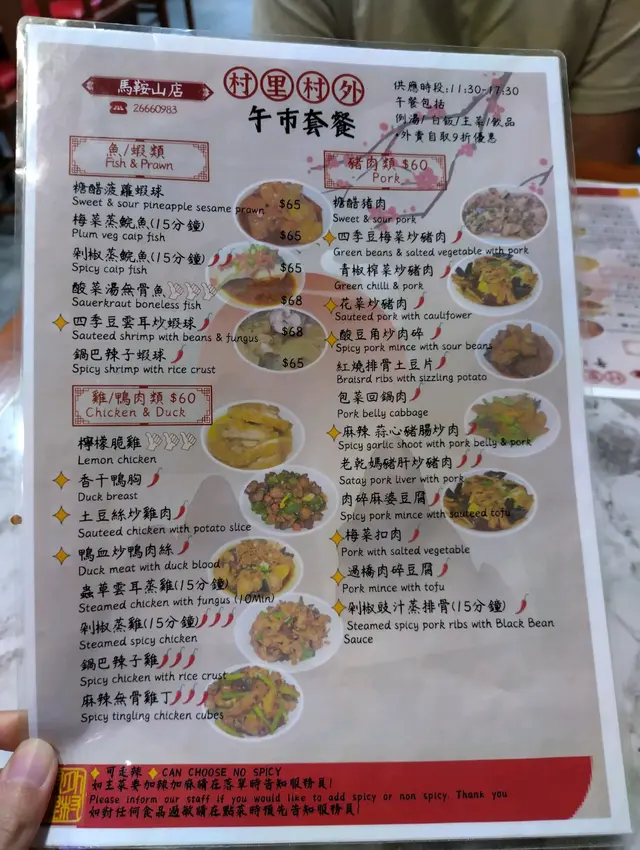 馬鞍山店
☎ 26660983
村里村外
午市套餐
供應時段:11:30-17:30
午餐包括
例湯/白飯/主菜/飲品
•外賣自取9折優惠
魚/蝦類
Fish & Prawn
糖醋菠蘿蝦球
Sweet & sour pineapple sesame prawn $65
梅菜蒸鯇魚(15分鐘)
Plum veg caip fish
剁椒蒸鯇魚(15分鐘)
Spicy caip fish $65
酸菜湯無骨魚
Sauerkraut boneless fish $68
四季豆雲耳炒蝦球
Sauteed shrimp with beans & fungus $68
鍋巴辣子蝦球
Spicy shrimp with rice crust $65
雞/鴨肉類 $60
Chicken & Duck
檸檬脆雞
Lemon chicken
香干鴨胸
Duck breast
土豆絲炒雞肉
Sauteed chicken with potato slice
鴨血炒鴨肉絲
Duck meat with duck blood
蟲草雲耳蒸雞(15分鐘)
Steamed chicken with fungus (10Min)
剁椒蒸雞(15分鐘)
Steamed spicy chicken
鍋巴辣子雞
Spicy chicken with rice crust
麻辣無骨雞丁
Spicy tingling chicken cubes
豬肉類 $60
Pork
糖醋豬肉
Sweet & sour pork
四季豆梅菜炒豬肉
Green beans & salted vegetable with pork
青椒榨菜炒豬肉
Green chilli & pork
花菜炒豬肉
Sauteed pork with caulifower
酸豆角炒肉碎
Spicy pork mince with sour beans
紅燒排骨土豆片
Braisrd ribs with sizzling potato
包菜回鍋肉
Pork belly cabbage
麻辣 蒜心豬腸炒肉
Spicy garlic shoot with pork belly & pork
老乾媽豬肝炒豬肉
Satay pork liver with pork
肉碎麻婆豆腐
Spicy pork mince with sauteed tofu
梅菜扣肉
Pork with salted vegetable
過橋肉碎豆腐
Pork mince with tofu
剁椒豉汁蒸排骨(15分鐘)
Steamed spicy pork ribs with Black Bean
Sauce
可走辣 CAN CHOOSE NO SPICY
如主菜要加辣加麻請在落單時告知服務員!
Please inform our staff if you would like to add spicy or non spicy. Thank you
如對任何食品過敏請在點菜時預先告知服務員!